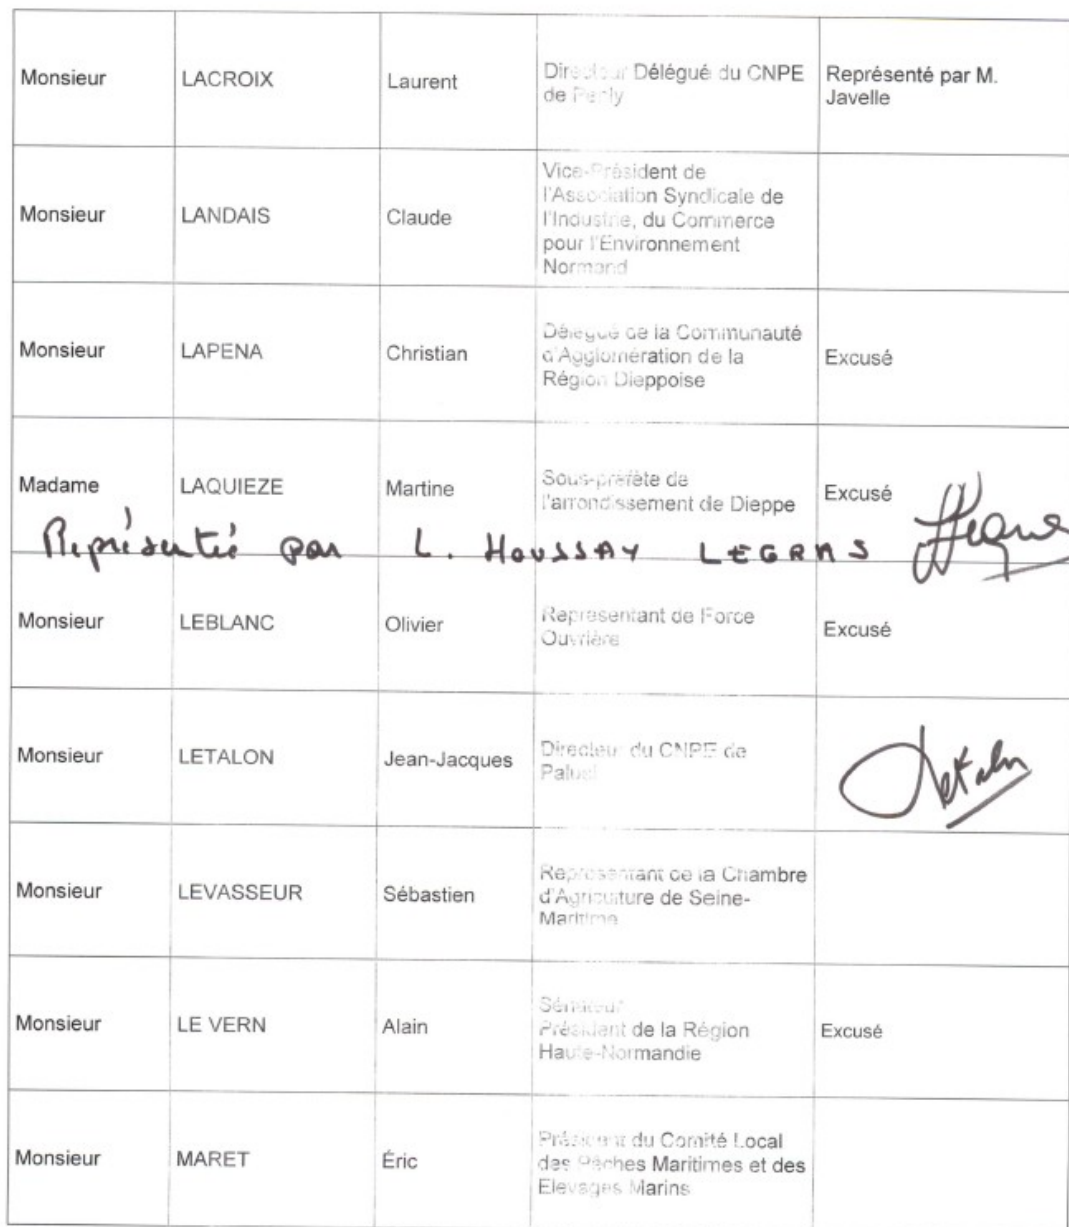 Monsieur LACROIX Laurent Directeur Délégué du CNPE de Penly Représenté par M. Javelle
Monsieur LANDAIS Claude Vice-Président de l'Association Syndicale de l'Industrie, du Commerce pour l'Environnement Normand
Monsieur LAPENA Christian Délégué de la Communauté d'Agglomération de la Région Dieppoise Excusé
Madame LAQUIEZE Martine Sous-préfète de l'arrondissement de Dieppe Excusé
Représentée par L. HOUSSAY LEGRAS
Monsieur LEBLANC Olivier Représentant de Force Ouvrière Excusé
Monsieur LETALON Jean-Jacques Directeur du CNPE de Paluel Letalon
Monsieur LEVASSEUR Sébastien Représentant de la Chambre d'Agriculture de Seine-Maritime
Monsieur LE VERN Alain Sénateur Président de la Région Haute-Normandie Excusé
Monsieur MARET Éric Président du Comité Local des Pêches Maritimes et des Elevages Marins